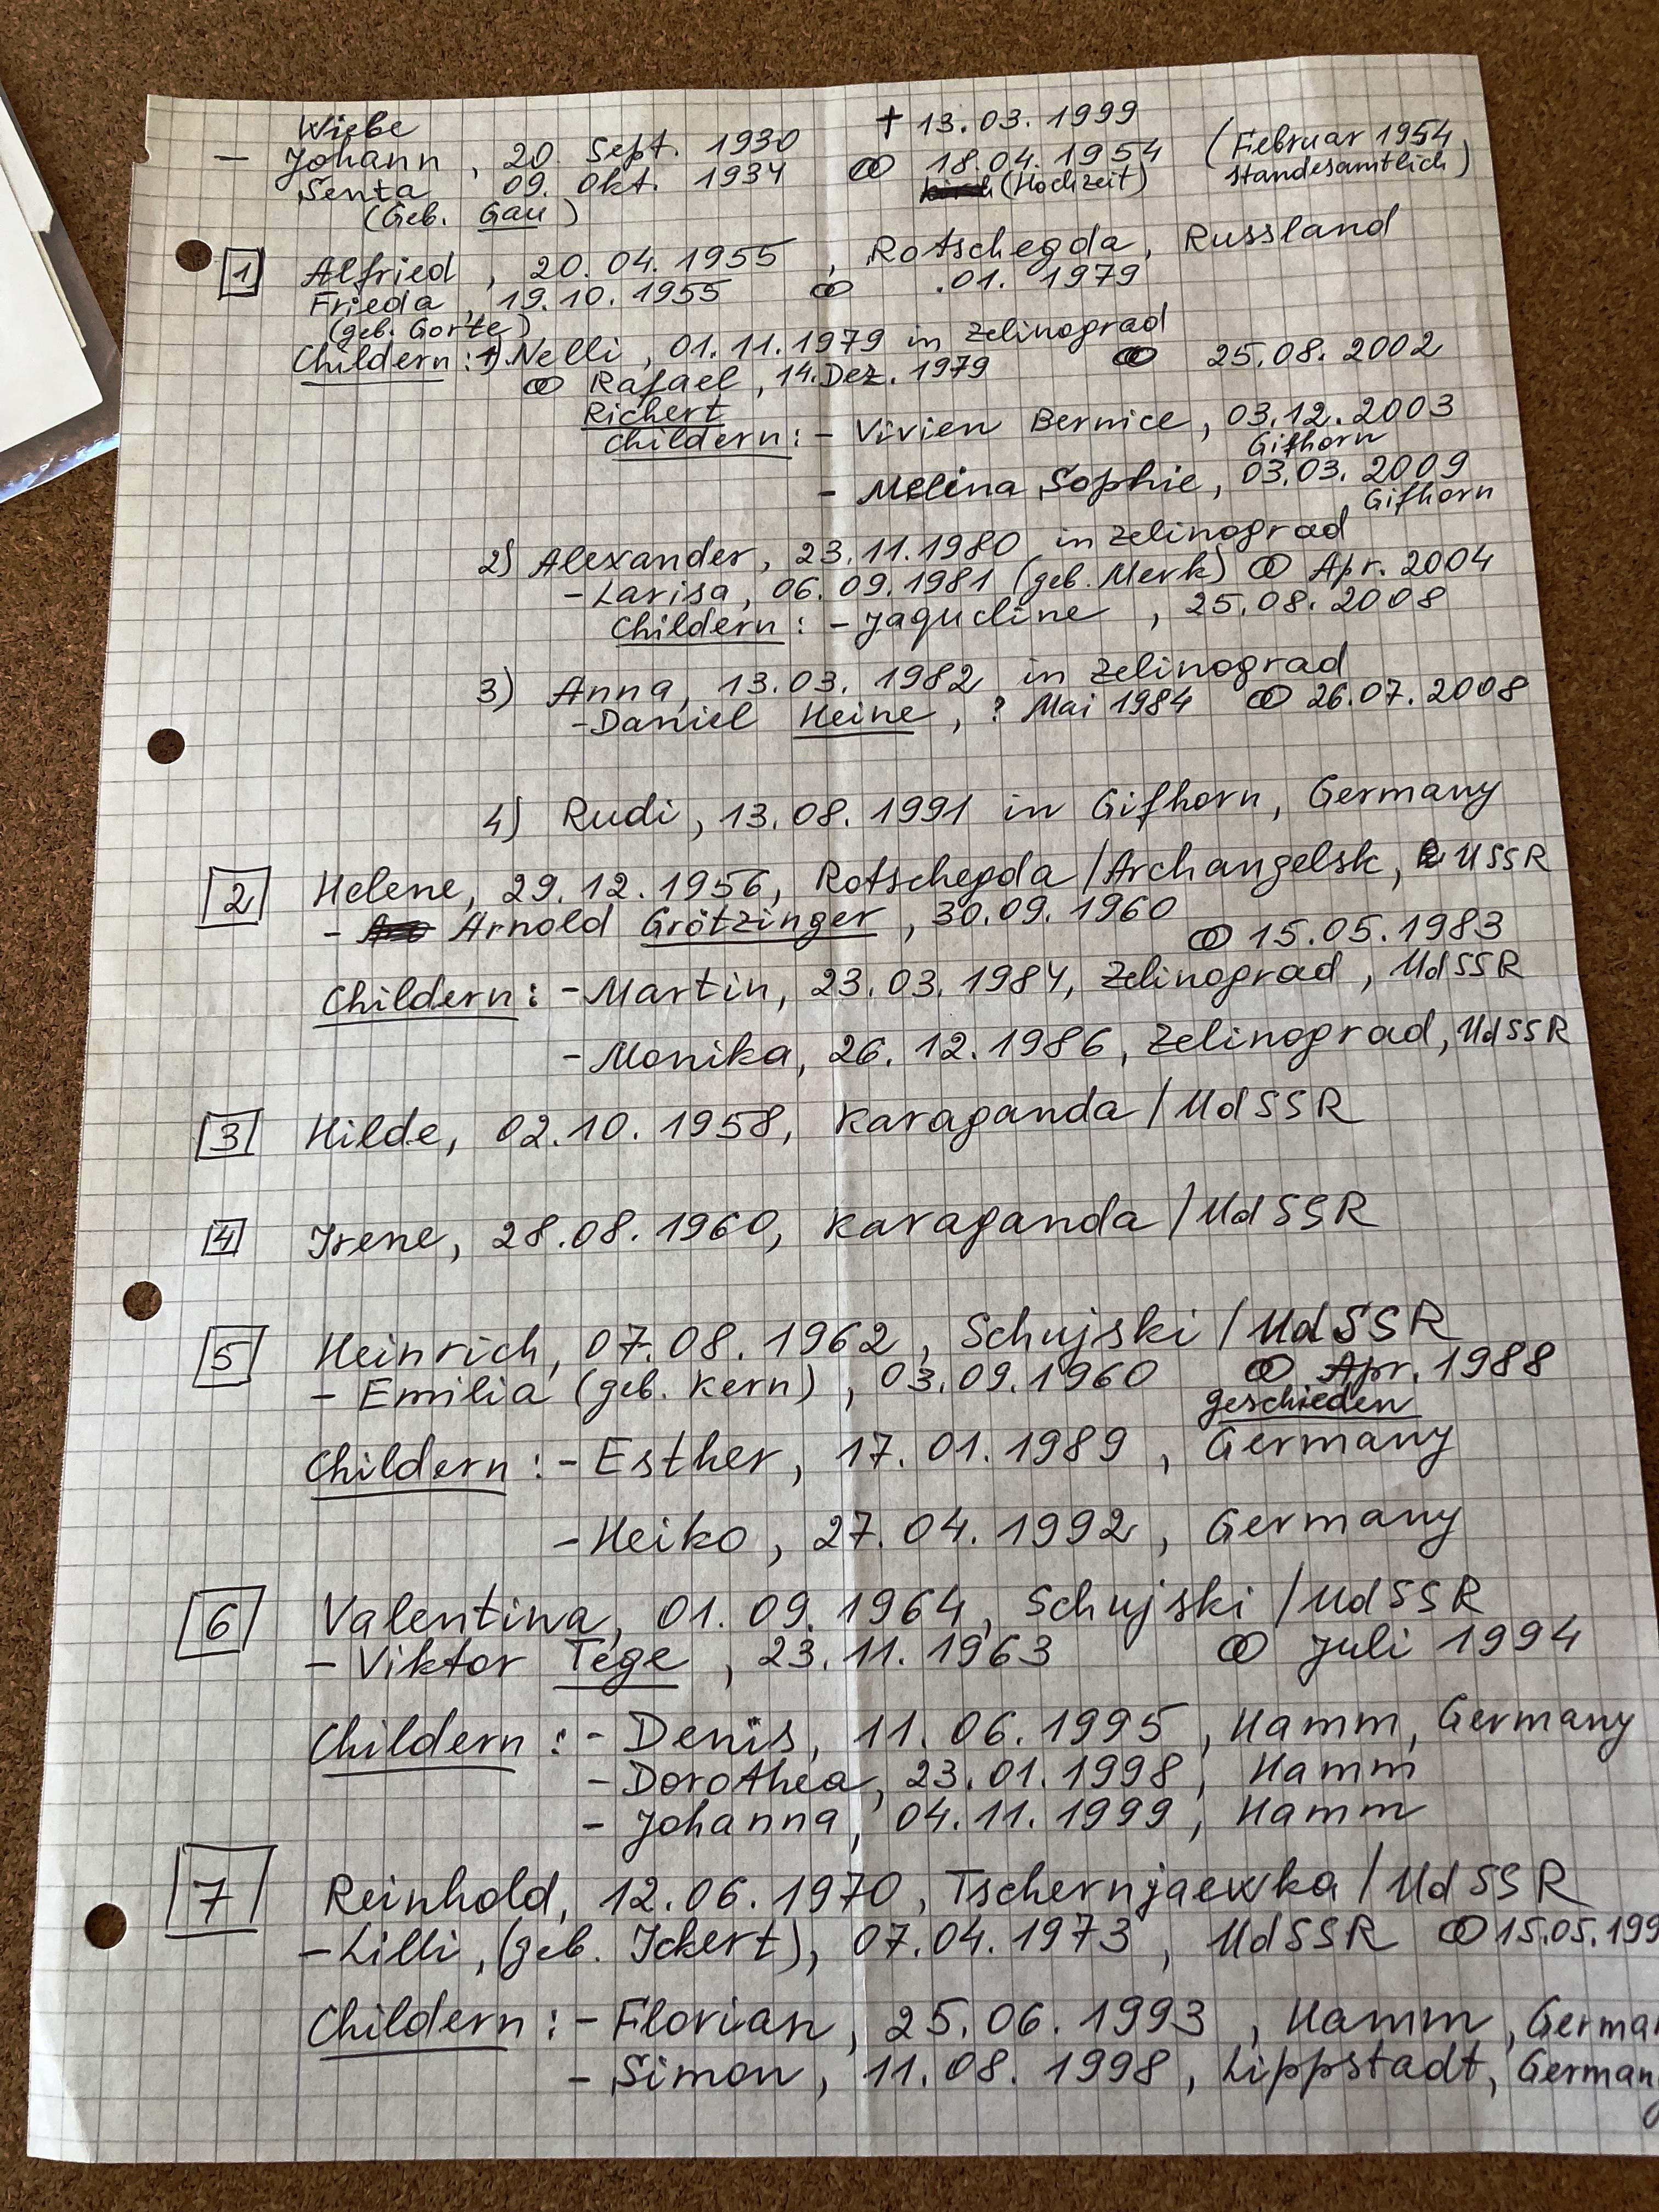 Wiebe + 13.03.1999
- Johann, 20. Sept. 1930 ⚭ 18.04.1954 (Februar 1954
Senta 09. Okt. 1934 (Hochzeit) standesamtlich)
(Geb. Gau)
1 Alfried, 20.04.1955, Rotschegda, Russland
Frieda, 19.10.1955 ⚭ .01.1979
(geb. Gorte)
Childern: 1). Nelli, 01.11.1979 in Zelinograd
⚭ Rafael, 14. Dez. 1979 ⚭ 25.08.2002
Richert
Childern: - Vivien Bernice, 03.12.2003
Gifhorn
- Melina Sophie, 03.03.2009
Gifhorn
2) Alexander, 23.11.1980 in Zelinograd
- Larisa, 06.09.1981 (geb. Merk) ⚭ Apr. 2004
Childern: - Jaqueline, 25.08.2008
3) Anna, 13.03.1982 in Zelinograd
- Daniel Heine, ? Mai 1984 ⚭ 26.07.2008
4) Rudi, 13.08.1991 in Gifhorn, Germany
2 Helene, 29.12.1956, Rotschegda/Archangelsk, USSR
- Arnold Grötzinger, 30.09.1960
⚭ 15.05.1983
Childern: - Martin, 23.03.1984, Zelinograd, UdSSR
- Monika, 26.12.1986, Zelinograd, UdSSR
3 Hilde, 02.10.1958, Karaganda/UdSSR
4 Irene, 28.08.1960, Karaganda/UdSSR
5 Heinrich, 07.08.1962, Schujski/UdSSR
- Emilia (geb. Kern), 03.09.1960 ⚭ Apr. 1988
geschieden
Childern: - Esther, 17.01.1989, Germany
- Heiko, 27.04.1992, Germany
6 Valentina, 01.09.1964, Schujski/UdSSR
- Viktor Tege, 23.11.1963 ⚭ Juli 1994
Childern: - Denis, 11.06.1995, Hamm, Germany
- Dorothea, 23.01.1998, Hamm
- Johanna, 04.11.1999, Hamm
7 Reinhold, 12.06.1970, Tschernjaewka/UdSSR
- Lilli, (geb. Ickert), 07.04.1973, UdSSR ⚭ 15.05.199
Childern: - Florian, 25.06.1993, Hamm, German
- Simon, 11.08.1998, Lippstadt, Germany